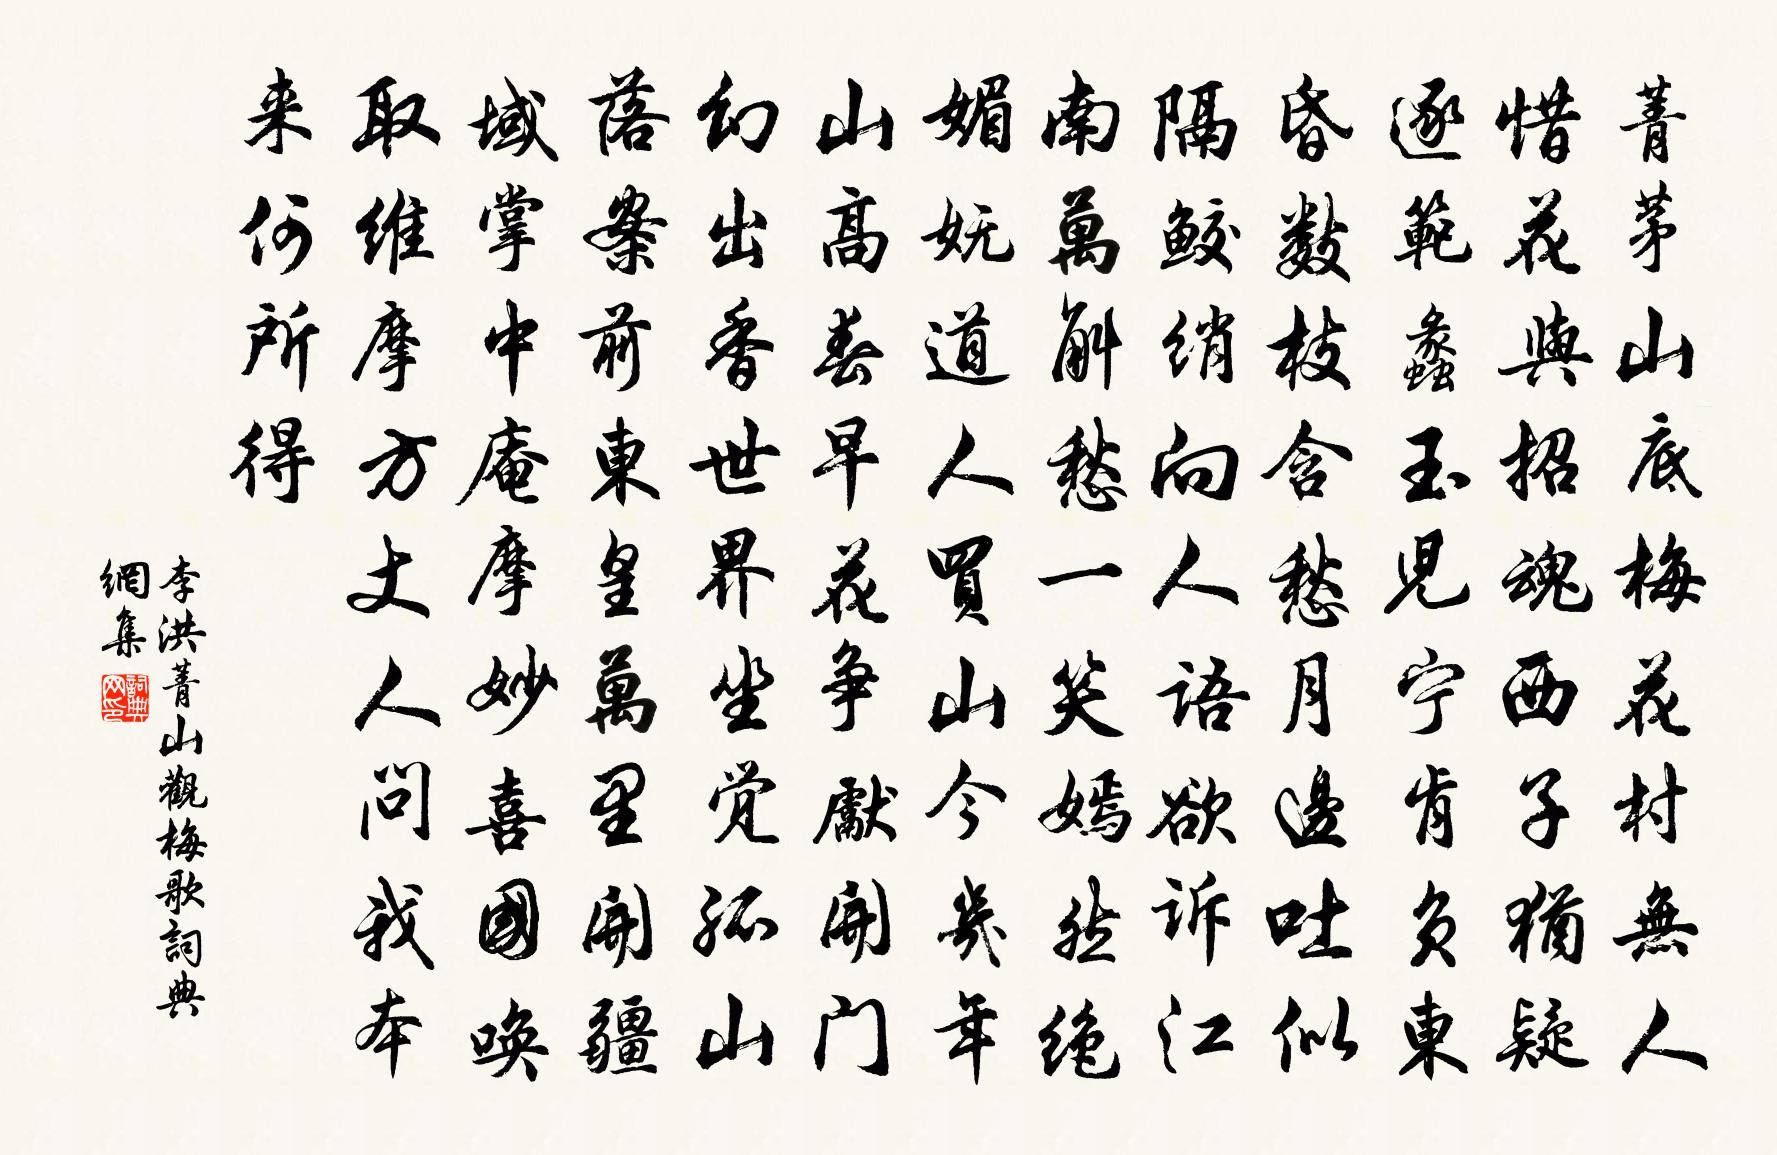 菁茅山底梅花村無人
惜花與招魂西子猶疑
逐範蠡玉児宁肯負東
昏數枝含愁月邊吐似
隔鲛绡向人語欲訴江
南萬斛愁一笑嫣然绝
媚妩道人買山今幾年
山高春早花争獻開门
幻出香世界坐觉孤山
落案前東皇萬里開疆
域掌中庵摩妙喜國唤
取維摩方丈人问我本
来何所得
李洪菁山觀梅歌詞典
網集
詞典网印